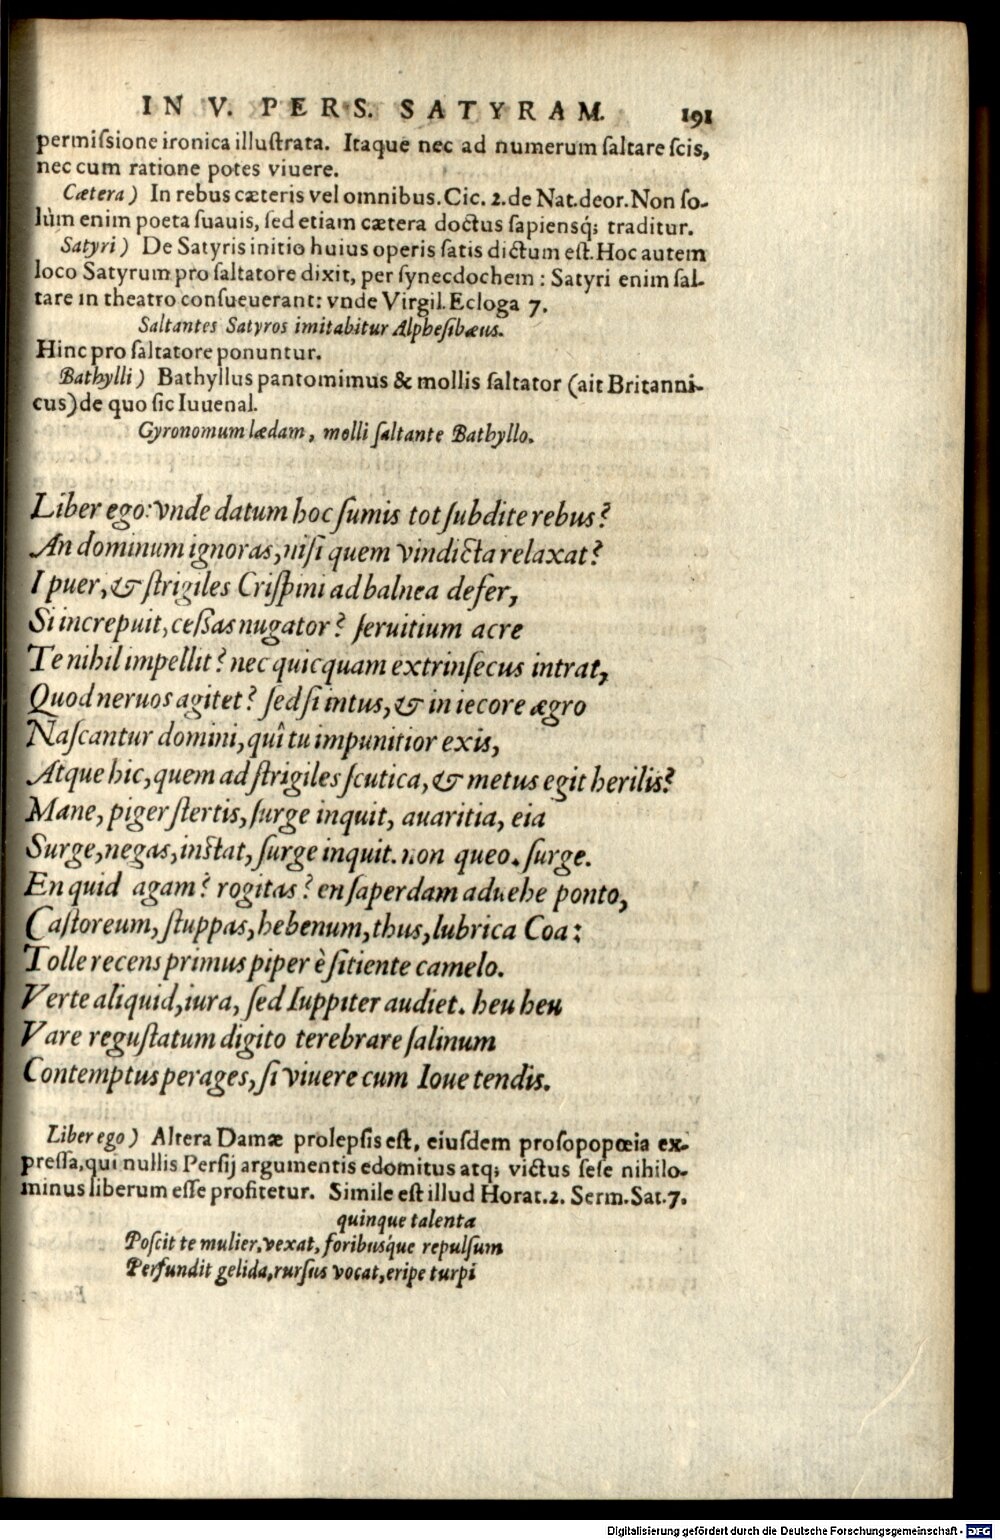 IN V. PERS. SATYRAM. 191
permissione ironica illustrata. Itaque nec ad numerum saltare scis,
nec cum ratione potes viuere.
Cætera) In rebus cæteris vel omnibus. Cic. 2. de Nat. deor. Non so-
lùm enim poeta suauis, sed etiam cætera doctus sapiensq́; traditur.
Satyri) De Satyris initio huius operis satis dictum est. Hoc autem
loco Satyrum pro saltatore dixit, per synecdochem: Satyri enim sal-
tare in theatro consueuerant: vnde Virgil. Ecloga 7.
Saltantes Satyros imitabitur Alphesibæus.
Hinc pro saltatore ponuntur.
Bathylli) Bathyllus pantomimus & mollis saltator (ait Britanni-
cus) de quo sic Iuuenal.
Gyronomum lædam, molli saltante Bathyllo.
Liber ego: vnde datum hoc sumis tot subdite rebus?
An dominum ignoras, nisi quem vindicta relaxat?
I puer, & strigiles Crispini ad balnea defer,
Si increpuit, cessas nugator? seruitium acre
Te nihil impellit? nec quicquam extrinsecus intrat,
Quod neruos agitet? sed si intus, & in iecore ægro
Nascantur domini, quî tu impunitior exis,
Atque hic, quem ad strigiles scutica, & metus egit herilis?
Mane, piger stertis, surge inquit, auaritia, eia
Surge, negas, instat, surge inquit. non queo. surge.
En quid agam? rogitas? en saperdam aduehe ponto,
Castoreum, stuppas, hebenum, thus, lubrica Coa:
Tolle recens primus piper è sitiente camelo.
Verte aliquid, iura, sed Iuppiter audiet. heu heu
Vare regustatum digito terebrare salinum
Contemptus perages, si viuere cum Ioue tendis.
Liber ego) Altera Damæ prolepsis est, eiusdem prosopopœia ex-
pressa, qui nullis Persij argumentis edomitus atq; victus sese nihilo-
minus liberum esse profitetur. Simile est illud Horat. 2. Serm. Sat. 7.
quinque talenta
Poscit te mulier, vexat, foribusq́ue repulsum
Perfundit gelida, rursus vocat, eripe turpi
Digitalisierung gefördert durch die Deutsche Forschungsgemeinschaft - DFG